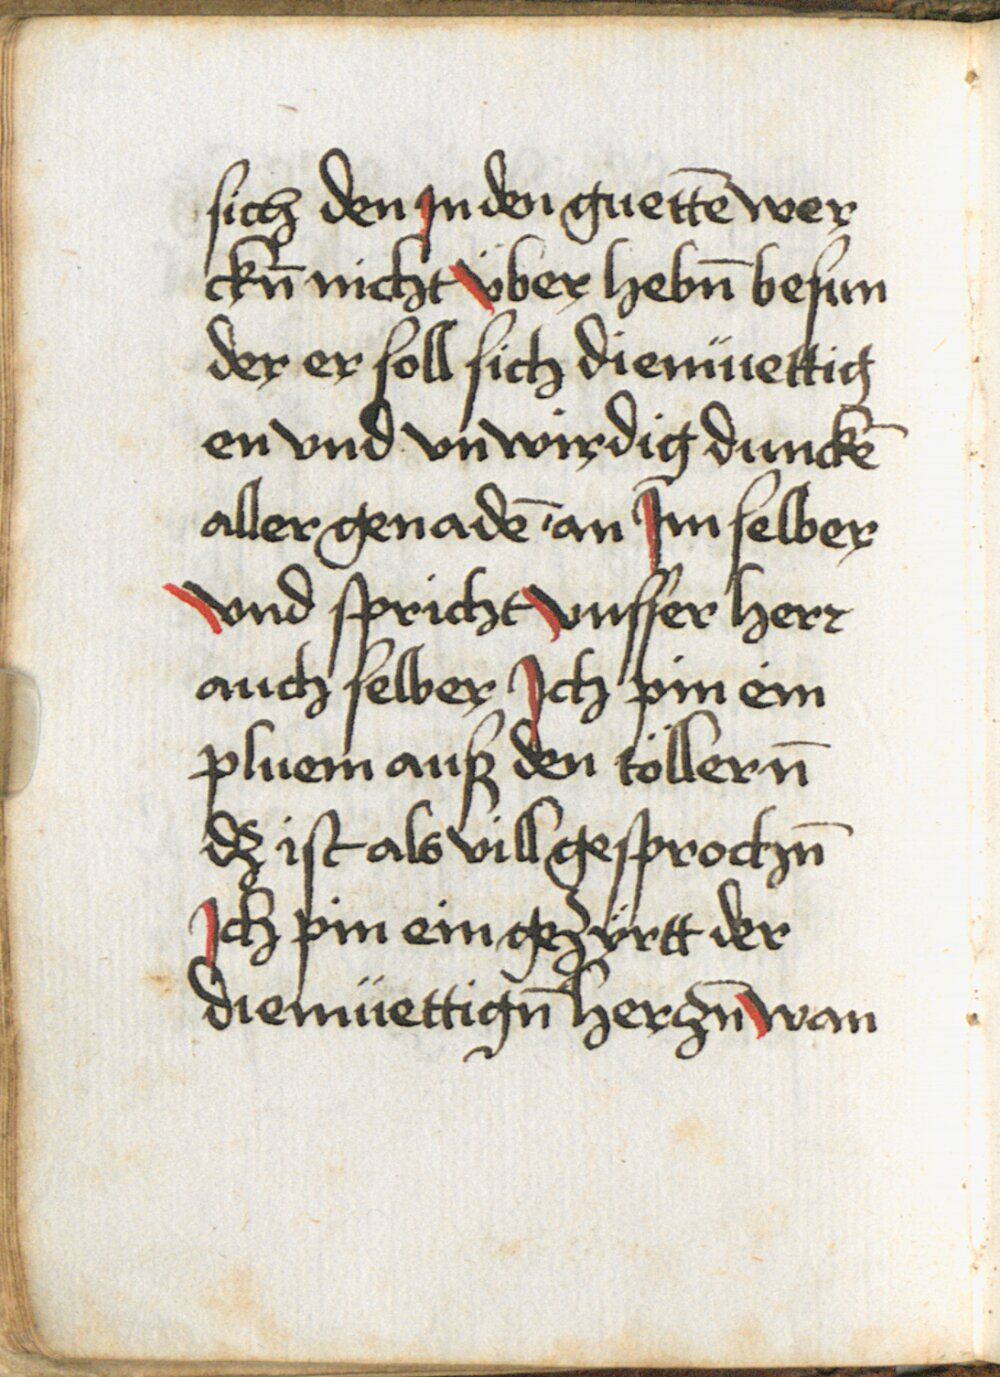 sich den Jn den guettē wer
ckn̄ nicht Vber hebn̄ besun
der er soll sich diemüettig
en vnd vnwirdig dunckē
aller genadē an Jm selber
Vnd spricht Vnsser herr
auch selber Jch pin ein
pluem auß den töllern̄
dz ist als vill gesprochn̄
Jch pin ein gezÿrtt der
diemüettign̄ herzn̄ wan